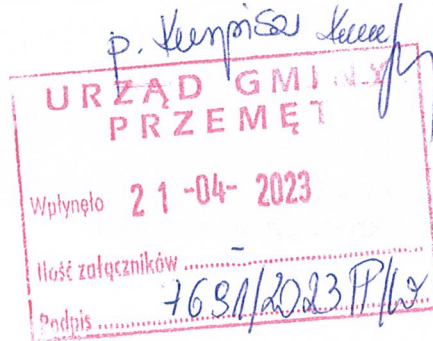 p.
URZĄD GMINY
PRZEMĘT
Wpłynęło 21 -04- 2023
Ilość załączników -
Podpis 7691/2023